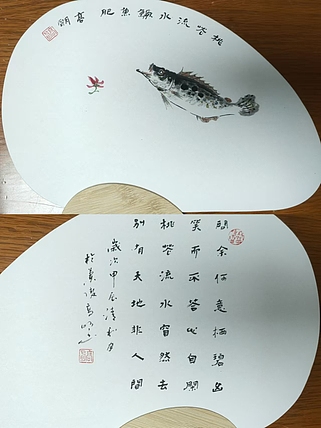 桃花流水鱖魚肥 高
問余何意栖碧山
笑而不答心自閑
桃花流水窅然去
別有天地非人間
歲次甲辰清和月
於